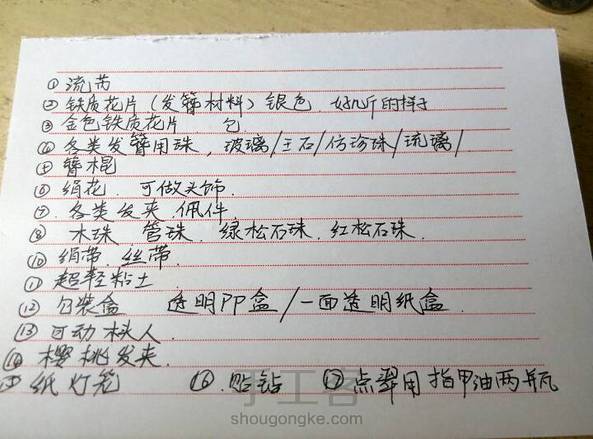 ① 流苏
② 铁质花片（发簪材料）银色 好几斤的样子
③ 金色铁质花片 包
④ 各类发簪用珠，玻璃/玉石/仿珍珠/琉璃/
⑤ 簪棍
⑥ 绢花 可做头饰
⑦ 各类发夹 佩件
⑧ 木珠 管珠 绿松石珠 红松石珠
⑩ 绢带 丝带
⑪ 超轻粘土
⑫ 包装盒 透明PP盒/一面透明纸盒
⑬ 可动木头人
⑭ 樱桃发夹
纸灯笼 ⑯ 贴钻 ⑰ 点翠用指甲油两瓶
手工客
shougongke.com